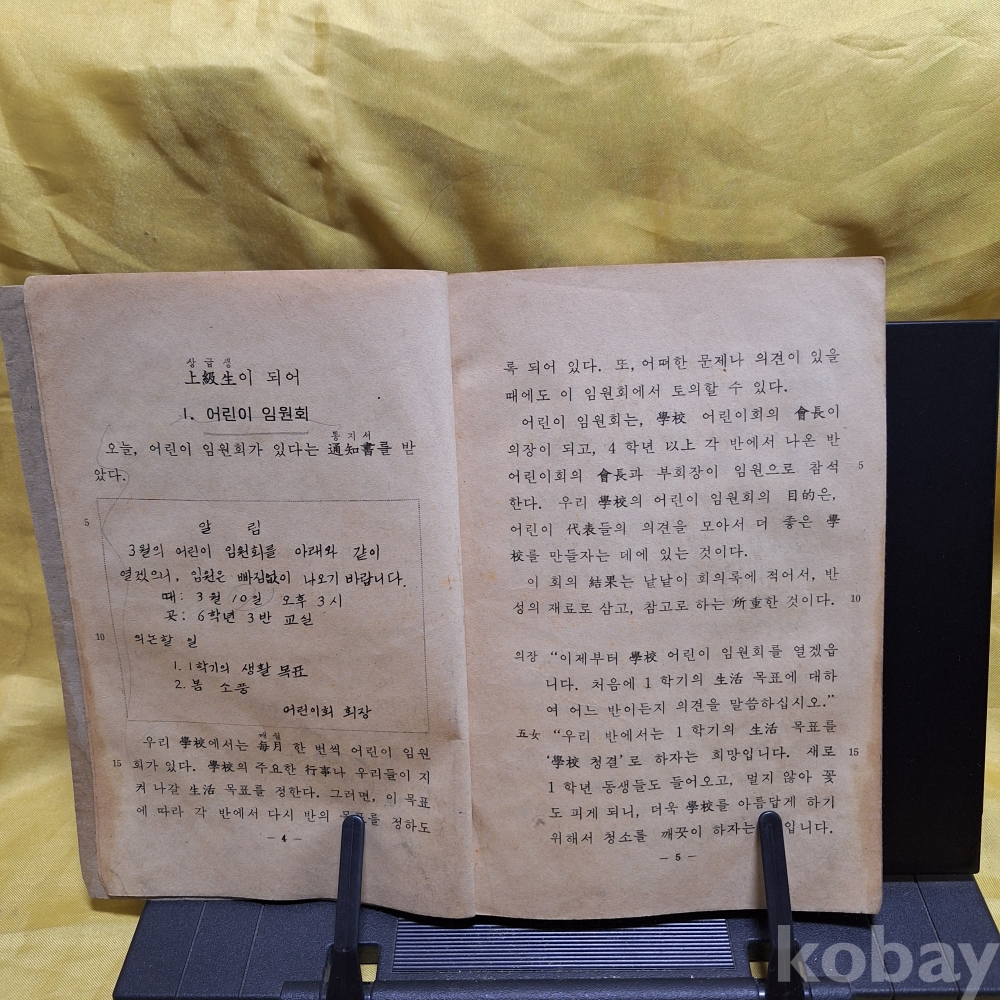 상급생
上級生이 되어
1. 어린이 임원회
통지서
오늘, 어린이 임원회가 있다는 通知書를 받
았다.
5
알 림
3월의 어린이 임원회를 아래와 같이
열겠으니, 임원은 빠짐없이 나오기 바랍니다.
때: 3월 10일 오후 3시
곳: 6학년 3반 교실
10 의논할 일
1. 1학기의 생활 목표
2. 봄 소풍
어린이회 회장
매월
우리 學校에서는 每月 한 번씩 어린이 임원
15 회가 있다. 學校의 주요한 行事나 우리들이 지
켜 나갈 生活 목표를 정한다. 그러면, 이 목표
에 따라 각 반에서 다시 반의 를 정하도
— 4 —
록 되어 있다. 또, 어떠한 문제나 의견이 있을
때에도 이 임원회에서 토의할 수 있다.
어린이 임원회는, 學校 어린이회의 會長이
의장이 되고, 4 학년 以上 각 반에서 나온 반
어린이회의 會長과 부회장이 임원으로 참석 5
한다. 우리 學校의 어린이 임원회의 目的은,
어린이 代表들의 의견을 모아서 더 좋은 學
校를 만들자는 데에 있는 것이다.
이 회의 結果는 낱낱이 회의록에 적어서, 반
성의 재료로 삼고, 참고로 하는 所重한 것이다. 10
의장 “이제부터 學校 어린이 임원회를 열겠읍
니다. 처음에 1 학기의 生活 목표에 대하
여 어느 반이든지 의견을 말씀하십시오.”
五女 “우리 반에서는 1 학기의 生活 목표를
‘學校 청결’로 하자는 희망입니다. 새로 15
1 학년 동생들도 들어오고, 멀지 않아 꽃
도 피게 되니, 더욱 學校를 아름답게 하기
위해서 청소를 깨끗이 하자는 입니다.
— 5 —
kobay